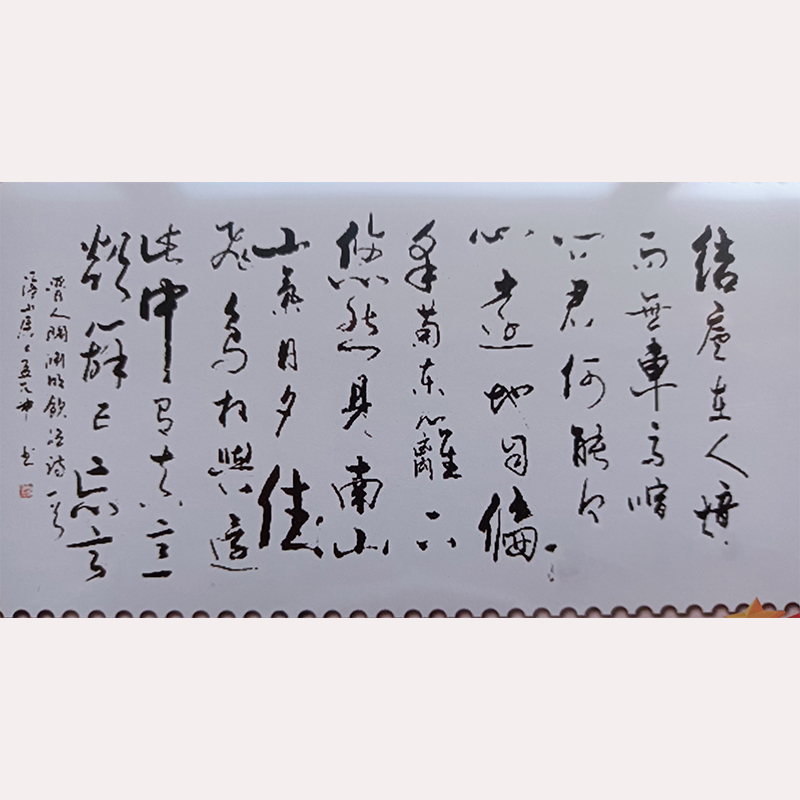 結廬在人境
而無車馬喧
問君何能尔
心遠地自偏
采菊東籬下
悠然見南山
山氣日夕佳
飛鳥相與還
此中有真意
欲辨已忘言
晋人陶渊明飲酒詩一首
书